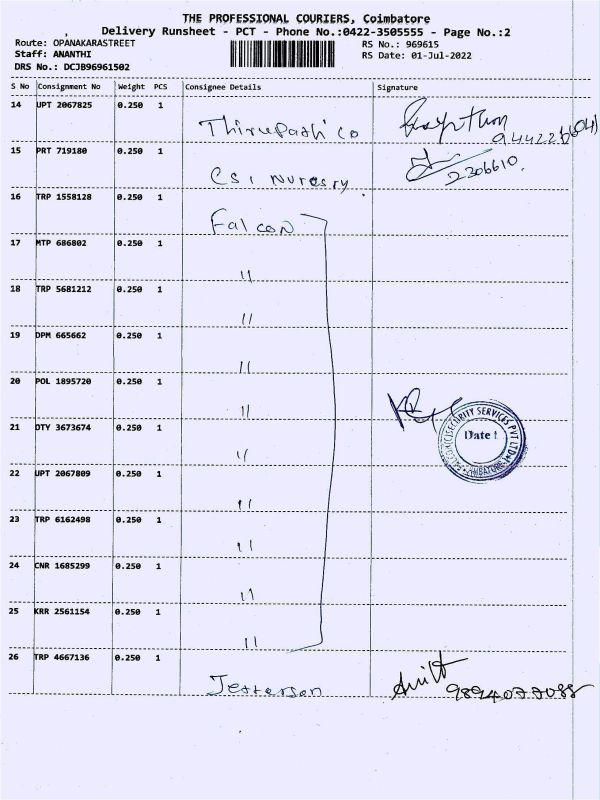 THE PROFESSIONAL COURIERS, Coimbatore
Delivery Runsheet - PCT - Phone No.:0422-3505555 - Page No.:2
Route: OPANAKARASTREET
RS No.: 969615
Staff: ANANTHI
RS Date: 01-Jul-2022
DRS No.: DCJB96961502
S No Consignment No Weight PCS Consignee Details Signature
14 UPT 2067825 0.250 1
Thirupathi co
15 PRT 719180 0.250 1
CSI Nursery
2306610
16 TRP 1558128 0.250 1
Falcon
17 MTP 686802 0.250 1
"
18 TRP 5681212 0.250 1
"
19 DPM 665662 0.250 1
"
20 POL 1895720 0.250 1
"
21 DTY 3673674 0.250 1
"
SECURITY SERVICES PVT LTD
Date :
22 UPT 2067809 0.250 1
"
23 TRP 6162498 0.250 1
"
24 CNR 1685299 0.250 1
"
25 KRR 2561154 0.250 1
"
26 TRP 4667136 0.250 1
Jefferson